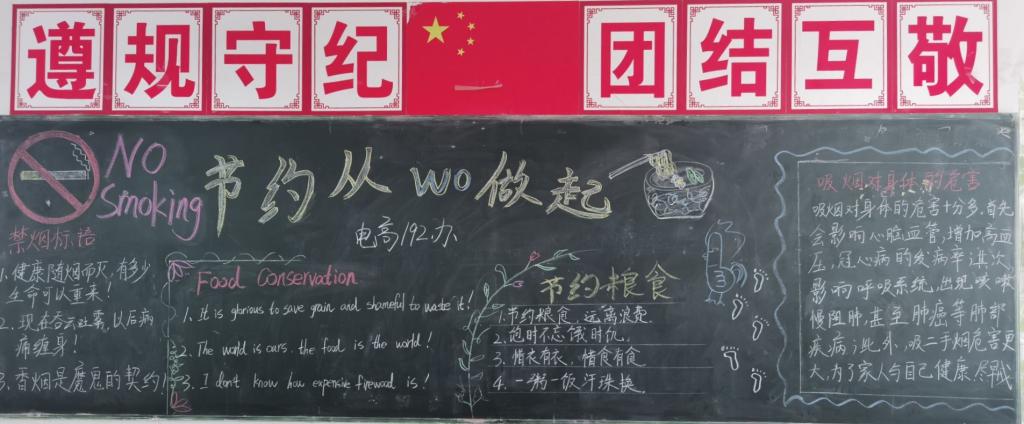 遵规守纪
团结互敬
NO
Smoking
节约从wo做起
电高192.办
禁烟标语
1.健康随烟而灭,有多少
生命可以重来!
2.现在吞云吐雾,以后病
痛缠身!
3.香烟是魔鬼的契约!
Food Conservation
1. It is glorious to save grain and shameful to waste it!
2. The world is ours. the food is the world!
3. I don't know how expensive firewood is!
节约粮食
1.节约粮食,远离浪费.
2.饱时不忘饿时饥.
3.惜衣有衣、惜食有食
4.一粥一饭汗珠换.
吸烟对身体的危害
吸烟对身体的危害十分多.首先
会影响心脑血管,增加高血
压,冠心病的发病率.其次
影响呼吸系统,出现咳嗽
慢阻肺,甚至肺癌等肺部
疾病;此外,吸二手烟危害更
大.为了家人与自己健康,尽早戒